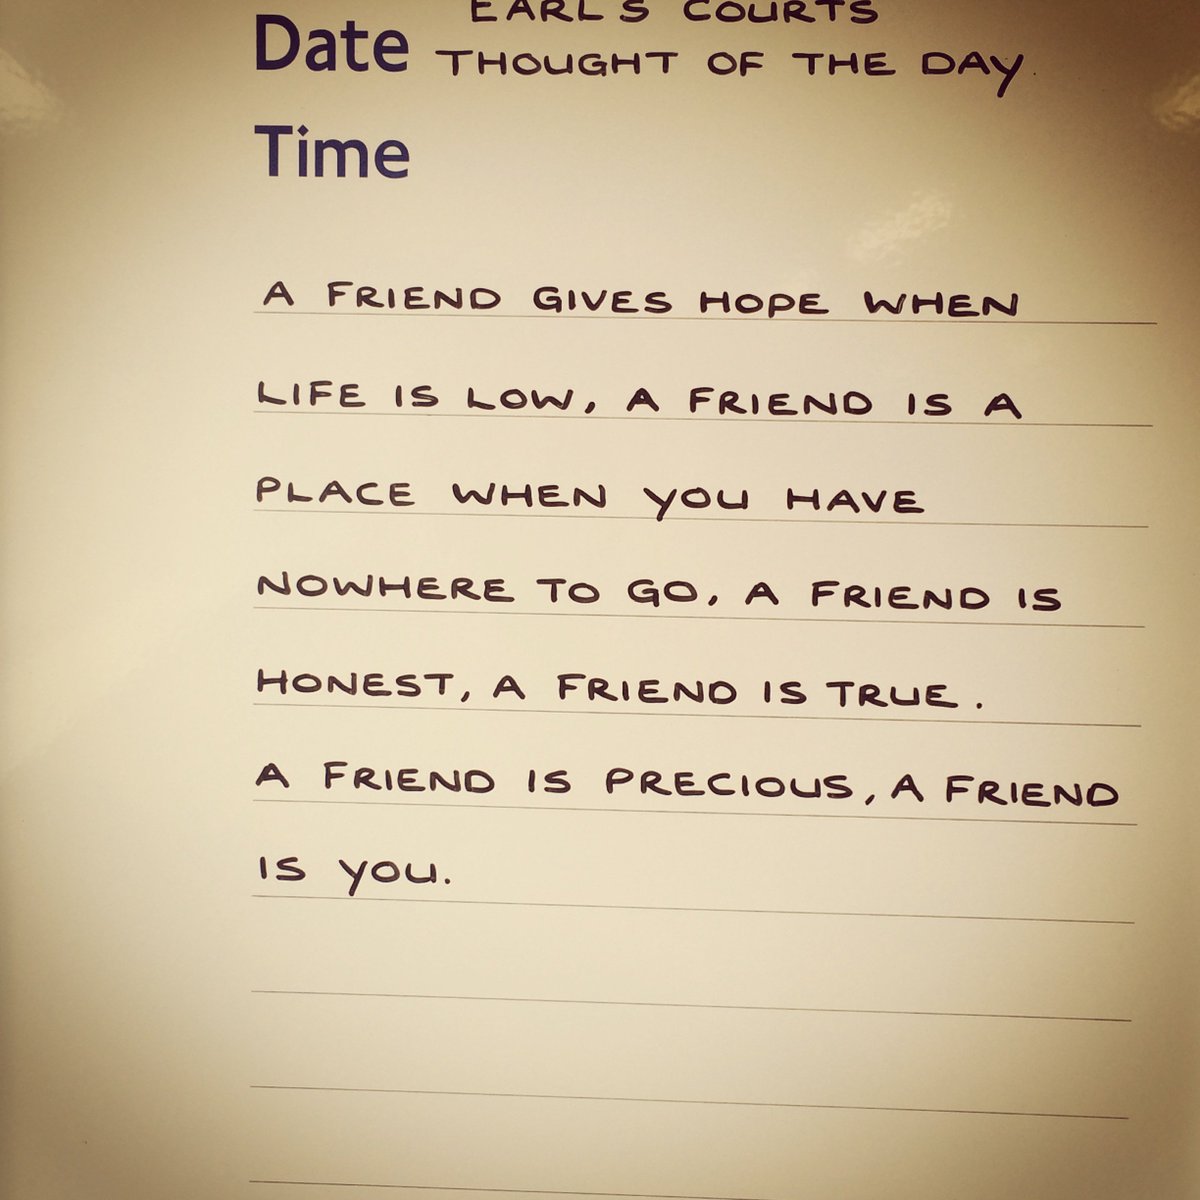 EARLS COURTS
Date THOUGHT OF THE DAY
Time
A FRIEND GIVES HOPE WHEN
LIFE IS LOW, A FRIEND IS A
PLACE WHEN YOU HAVE
NOWHERE TO GO, A FRIEND IS
HONEST, A FRIEND IS TRUE.
A FRIEND IS PRECIOUS, A FRIEND
IS YOU.